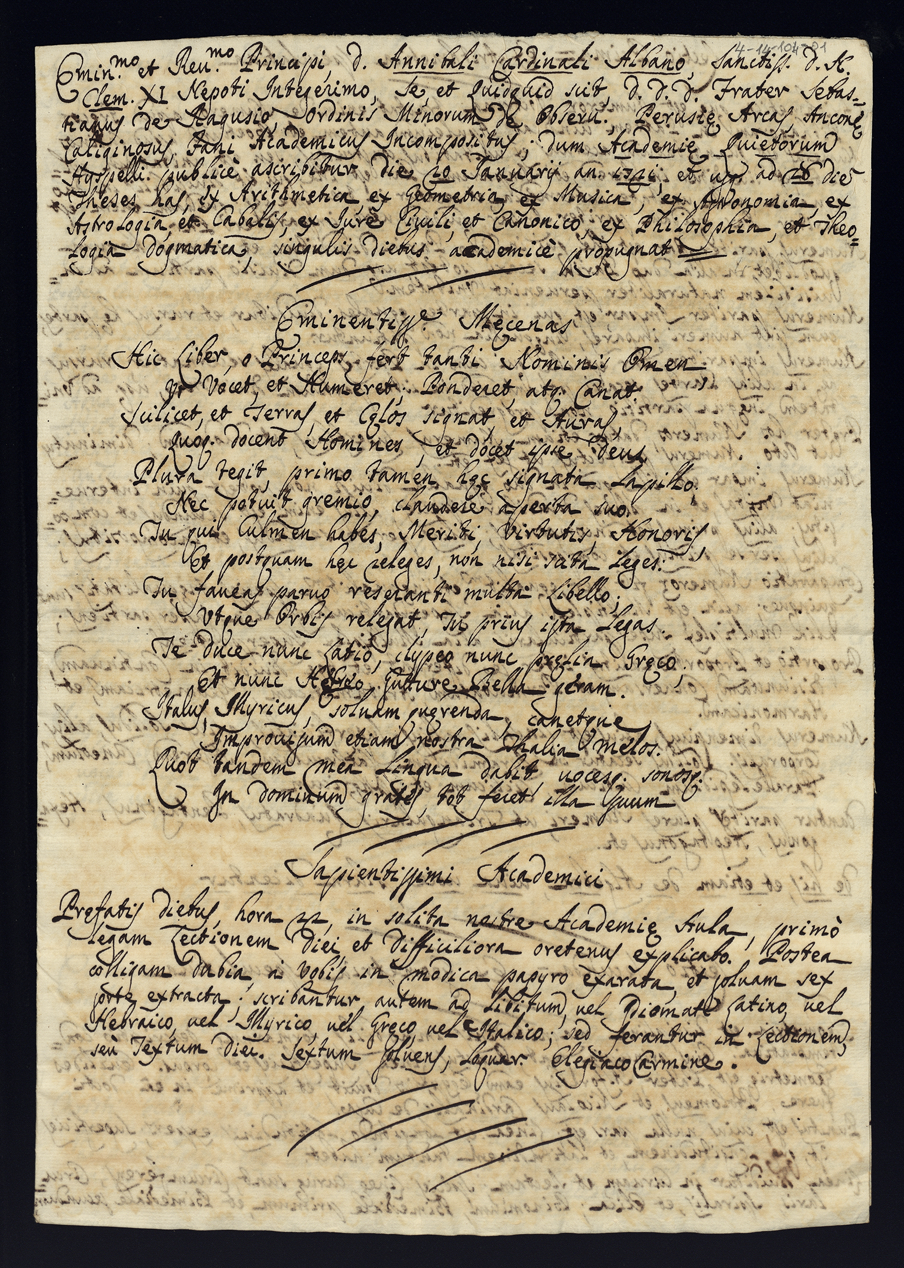 4-14-104-21
Emin.mo et Reu.mo Principi, d. Annibali Cardinali Albano, Sanctiss. D. N.
Clem. XI Nepoti Integerimo, Se et Quidquid scit, D. D. D. Frater Sebas=
tianus de Ragusio, Ordinis Minorum de Obseru. Perusię Arcas, Anconę
Caliginosus, Fani Academicus Incompositus; dum Academię Quietorum
publicè ascribitur die 10 January an. et usq ad die
Theses has, ex Arithmetica ex Geometria ex Musica, ex Astronomia ex
Astrologia, et Cabalis, ex Jure Ciuili et Canonico, ex Philosophia, et Theo=
logia dogmatica, singulis diebus academicè propugnat
Eminentisse Mecenas
Hic Liber, o Princeps, fert tanti Nominis Omen
Vocet, et Numeret, Ponderet atq. Canat.
Scilicet, et Terras, et Cęlos signat, et Auras,
Quoq. docent Homines, et docet ipse deus
Plura tegit, primo tamen hęc signata Lapillo,
Nec potuit gremio, claudere aperta suo.
Tu qui Culmen habes, Meriti, Virtutis, Honoris
Et postquam hęc releges, non nisi scita Leges.
Tu faueas paruo reseranti multa Libello;
Vtque Orbis relegat, Tu prius ista Legas.
Te duce nunc Latio, clypeo nunc pręlia Gręco,
Et nunc Hebreo Guture Bella geram.
Italus, Illyricus, soluam querenda, canetque
Improuisum etiam nostra Thalia Melos.
Quot tandem mea Lingua dabit uocesq. sonosq.
In dominum grates, tot feret illa suum
Sapientissimi Academici
Prefatis diebus, hora 22, in solita nostrę Academię Aula, primò
legam Lectionem Diei, et Difficiliora oretenus explicabo. Postea
colligam dubia a Vobis in modica papyro exarata, et soluam sex
sorte extracta: scribantur autem ad Libitum, uel Idiomate Latino, uel
Hebraico, uel Illyrico, uel Gręco, uel Italico; sed ferantur in Lectionem,
seù Textum Diei. Sextum soluens, loquar Elegiaco Carmine.